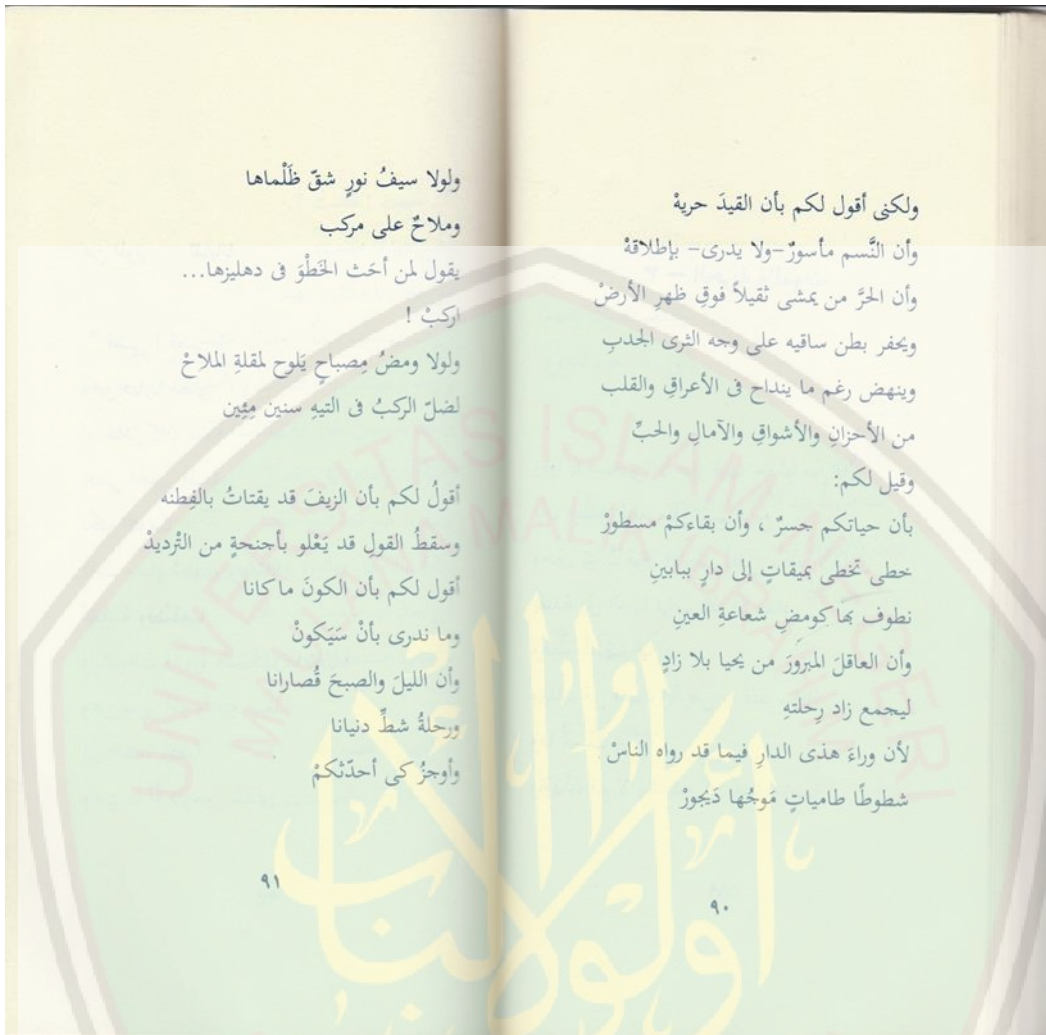 ولكنى أقول لكم بأن القيدَ حريةْ
وأن النَّسم مأسورٌ–ولا يدرى– بإطلاقهْ
وأن الحرَّ من يمشى ثقيلاً فوقِ ظهرِ الأرضْ
ويحفر بطن ساقيه على وجه الثرى الجدبِ
وينهض رغم ما ينداح فى الأعراقِ والقلب
من الأحزانِ والأشواقِ والآمالِ والحبِّ
وقيل لكم:
بأن حياتكم جسرٌ ، وأن بقاءكمْ مسطورْ
خطى تخطى بميقاتٍ إلى دارٍ ببابينِ
نطوف بها كومضِ شعاعةِ العينِ
وأن العاقلَ المبرورَ من يحيا بلا زادٍ
ليجمع زاد رِحلتهِ
لأن وراءَ هذى الدارِ فيما قد رواه الناسْ
شطوطًا طامياتٍ مَوجُها دَيجورْ
٩٠
ولولا سيفُ نورٍ شقّ ظَلْماها
وملاحٌ على مركب
يقول لمن أحَث الخَطْوَ فى دهليزها...
اركبْ !
ولولا ومضُ مِصباحٍ يَلوح لمقلةِ الملاحْ
لضلّ الركبُ فى التيهِ سنين مِئِين
أقولُ لكم بأن الزيفَ قد يقتاتُ بالفِطنه
وسقطُ القولِ قد يَعْلو بأجنحةٍ من التْرديدْ
أقول لكم بأن الكونَ ما كانا
وما ندرى بأنْ سَيَكونْ
وأن الليلَ والصبحَ قُصارانا
ورحلةُ شطِّ دنيانا
وأوجزُ كى أحدّثكمْ
٩١
UNIVERSITAS ISLAM NEGERI
MAULANA MALIK IBRAHIM
أولو الألباب